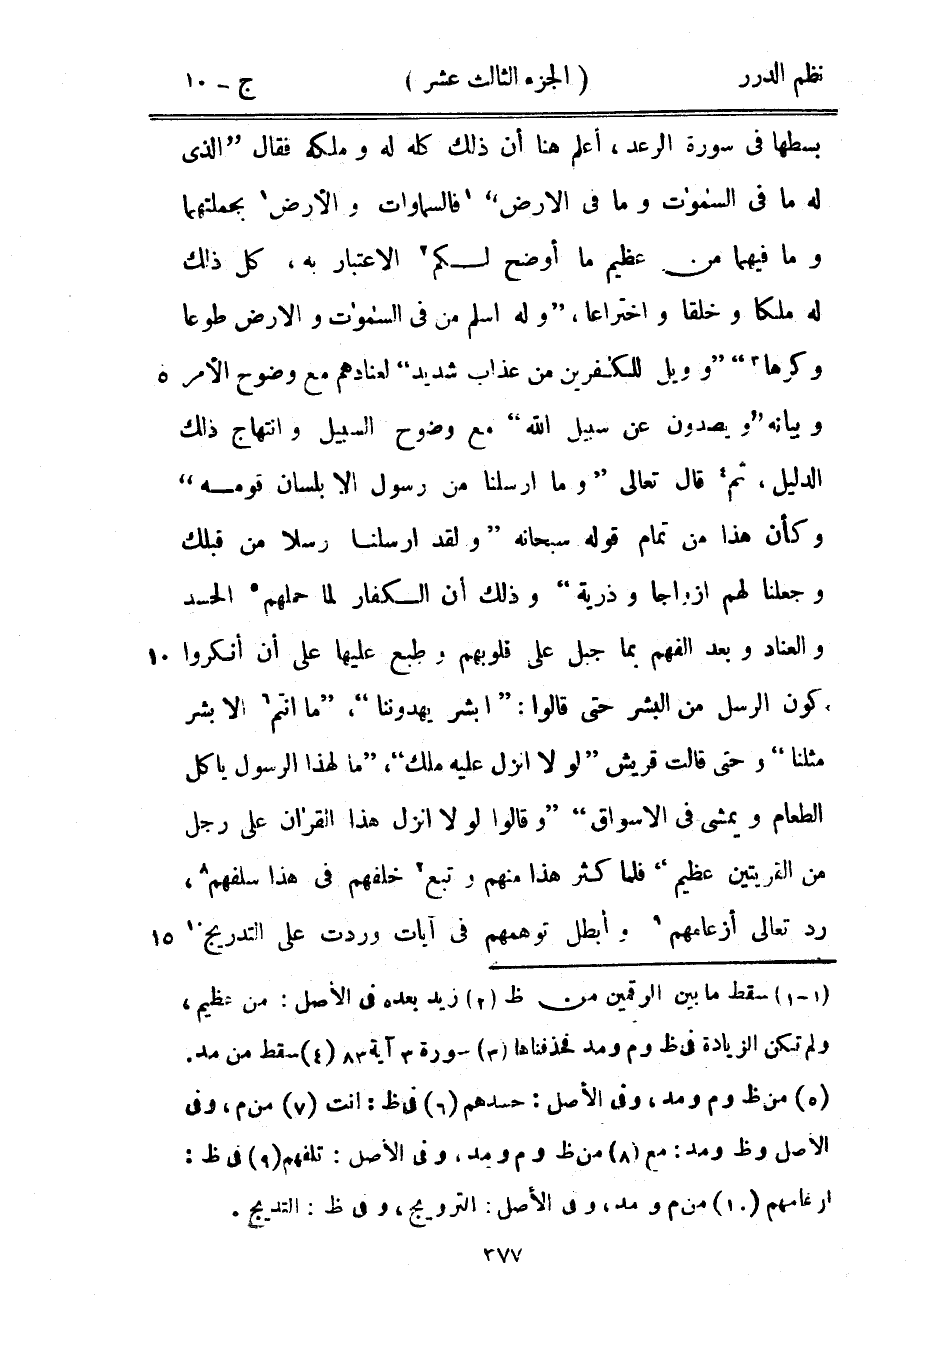 نظم الدرر ( الجزء الثالث عشر ) ج - ١٠
بسطها فى سورة الرعد ، أعلم هنا أن ذلك كله له و ملكه فقال ”الذى
له ما فى السمٰوٰت و ما فى الارض“ ¹فالسماوات و الأرض¹ بجملتهما
و ما فيهما من عظيم ما أوضح لـكم² الاعتبار به ، كل ذلك
له ملكا و خلقا و اختراعا ، ”و له اسلم من فى السمٰوٰت و الارض طوعا
و كرها³“ ”و ويل للكٰفرين من عذاب شديد“ لعنادهم مع وضوح الأمر ٥
و بيانه ”و يصدون عن سبيل الله“ مع وضوح السبيل و انتهاج ذلك
الدليل ، ثم⁴ قال تعالى ”و ما ارسلنا من رسول الا بلسان قومـه“
و كأن هذا من تمام قوله سبحانه ”و لقد ارسلنـا رسلا من قبلك
و جعلنا لهم ازواجا و ذرية“ و ذلك أن الـكفار لما حملهم⁵ الحسد
و العناد و بعد الفهم بما جبل على قلوبهم و طبع عليها على أن أنكروا ١٠
كون الرسل من البشر حتى قالوا : ”ابشر يهدوننا“، ”ما انتم⁶ الا بشر
مثلنا“ و حتى قالت قريش ”لو لا انزل عليه ملك“، ”ما لهذا الرسول ياكل
الطعام و يمشى فى الاسواق“ ”و قالوا لو لا انزل هذا القرٰان على رجل
من القريتين عظيم“ فلما كثر هذا منهم و تبع⁷ خلفهم فى هذا سلفهم⁸ ،
رد تعالى أزعامهم⁹ و أبطل توهمهم فى آيات وردت على التدريج¹⁰ ١٥
(١-١) سقط ما بين الرقمين من ظ (٢) زيد بعده فى الأصل : من عظيم ،
ولم تكن الزيادة فى ظ و م و مد فحذفناها (٣) سورة ٣ آية ٨٣ (٤) سقط من مد .
(٥) من ظ و م و مد ، و فى الأصل : حسدهم (٦) فى ظ : انت (٧) من م ، و فى
الأصل و ظ و مد : مع (٨) من ظ و م و مد ، و فى الأصل : تلفهم (٩) فى ظ :
ارغامهم (١٠) من م و مد ، و فى الأصل : الترويج ، و فى ظ : التديج .
٣٧٧